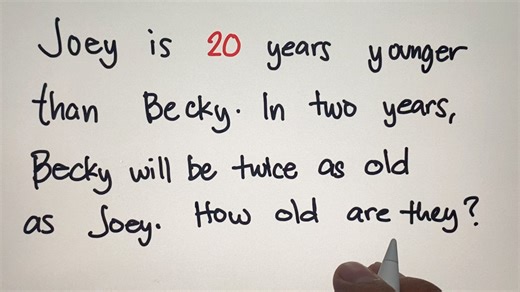 Joey is 20 years younger
than Becky. In two years,
Becky will be twice as old
as Joey. How old are they?